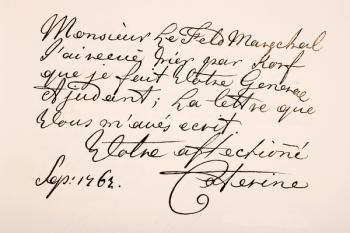 Monsieur Le Feld Marechal
J'ai recuë hier par Korf
que je fait Votre General
Ajudant; La lettre que
Vous m'avés ecrit
Votre affectioné
Sep: 1762. Caterine